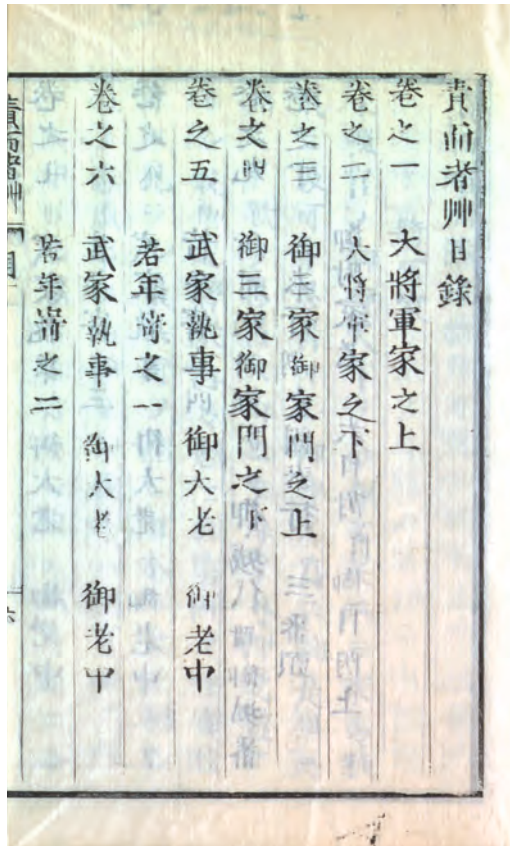 責而者艸目錄
卷之一 大將軍家之上
卷之二 大將軍家之下
卷之三 御三家御家門之上
卷之四 御三家御家門之下
卷之五 武家執事 御大老 御老中
若年寄之一
卷之六 武家執事 御大老 御老中
若年寄之二
責而者艸 目